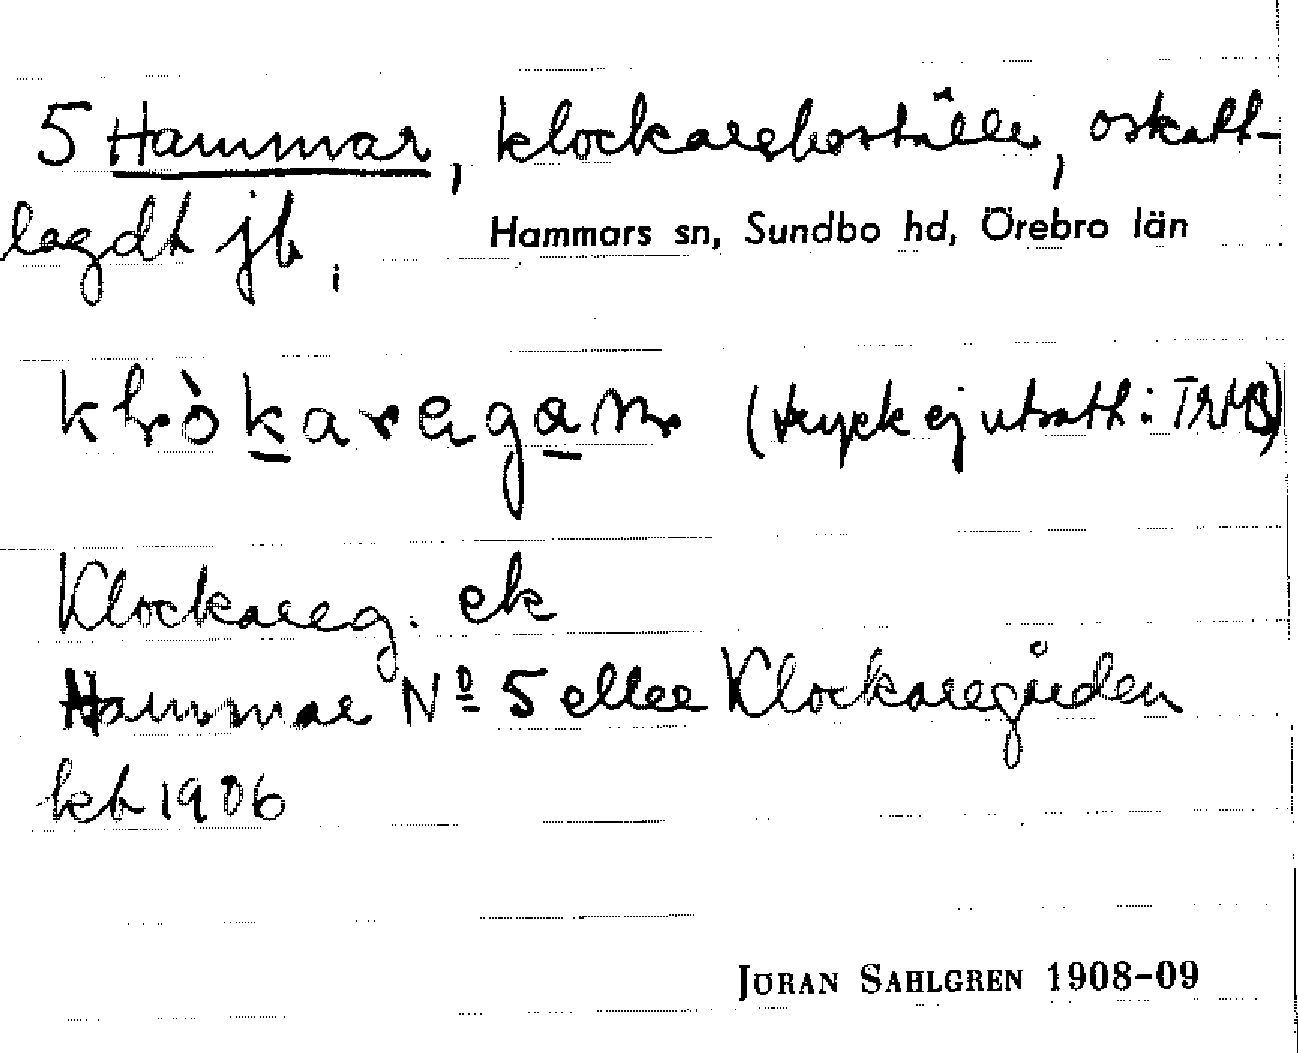 5 Hammar, klockareboställe, oskatt-
lagdt jb,
Hammars sn, Sundbo hd, Örebro län
(tryck ej utsatt:
Klockareg. ek
Hammar No 5 eller Klockaregården
kb 1906
JÖRAN SAHLGREN 1908-09